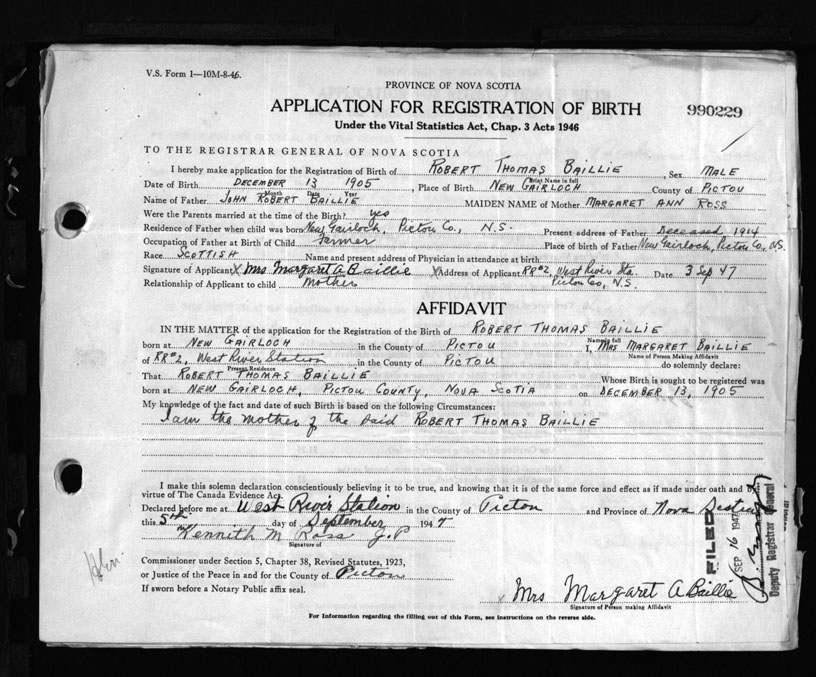 V.S. Form 1—10M-8-46.
PROVINCE OF NOVA SCOTIA
APPLICATION FOR REGISTRATION OF BIRTH 990229
Under the Vital Statistics Act, Chap. 3 Acts 1946
TO THE REGISTRAR GENERAL OF NOVA SCOTIA
I hereby make application for the Registration of Birth of ROBERT THOMAS BAILLIE, Sex MALE
Print Name in full
Date of Birth DECEMBER 13 1905, Place of Birth NEW GAIRLOCH County of PICTOU
Month Date Year
Name of Father JOHN ROBERT BAILLIE MAIDEN NAME of Mother MARGARET ANN ROSS
Were the Parents married at the time of the Birth? yes
Residence of Father when child was born New Gairloch, Pictou Co., N.S. Present address of Father Deceased 1914
Occupation of Father at Birth of Child farmer Place of birth of Father New Gairloch, Pictou Co, N.S.
Race SCOTTISH Name and present address of Physician in attendance at birth
Signature of Applicant X Mrs Margaret A Baillie X Address of Applicant RR#2, West River Sta. Date 3 Sep 47
Relationship of Applicant to child mother Pictou Co, N.S.
AFFIDAVIT
IN THE MATTER of the application for the Registration of the Birth of ROBERT THOMAS BAILLIE
Name in full
born at NEW GAIRLOCH in the County of PICTOU I, MRS MARGARET BAILLIE
Name of Person Making Affidavit
of RR#2, West River Station in the County of PICTOU do solemnly declare:
Present Residence
That ROBERT THOMAS BAILLIE Whose Birth is sought to be registered was
born at NEW GAIRLOCH, PICTOU COUNTY, NOVA SCOTIA on DECEMBER 13, 1905
My knowledge of the fact and date of such Birth is based on the following Circumstances:
I am the mother of the said ROBERT THOMAS BAILLIE
I make this solemn declaration conscientiously believing it to be true, and knowing that it is of the same force and effect as if made under oath and by
virtue of The Canada Evidence Act.
Declared before me at West River Station in the County of Pictou and Province of Nova Scotia
this 5th day of September 1947
Kennith M Ross J.P
Signature of
Commissioner under Section 5, Chapter 38, Revised Statutes, 1923,
or Justice of the Peace in and for the County of Pictou
If sworn before a Notary Public affix seal.
x Mrs Margaret A Baillie
Signature of Person making Affidavit
For Information regarding the filling out of this Form, see instructions on the reverse side.
FILED
SEP 16 1947
Deputy Registrar General